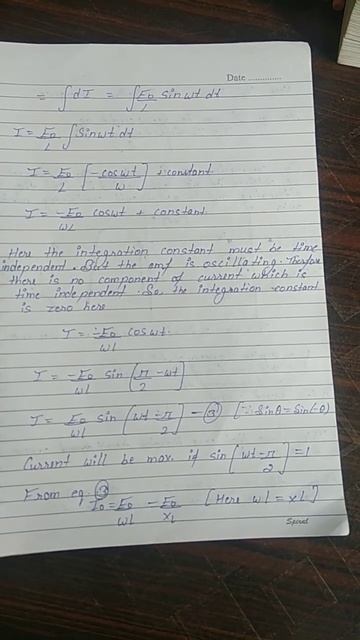 Date ..............
= ∫dI = ∫E0/L Sin wt dt
I = E0/L ∫Sin wt dt
I = E0/L [-cos wt/w] + constant
I = -E0/wL cos wt + constant
Here the integration constant must be time
independent. But the emf is oscillating. Therefore
there is no component of current which is
time independent. So, the integration constant
is zero here
I = -E0/wL cos wt.
I = -E0/wL sin [π/2 - wt]
I = E0/wL sin [wt - π/2] - (3) [∵ Sinθ = Sin(-θ)]
Current will be max. if sin [wt - π/2] = 1
From eq. (3)
I0 = E0/wL = E0/XL [Here wL = XL]
Spiral